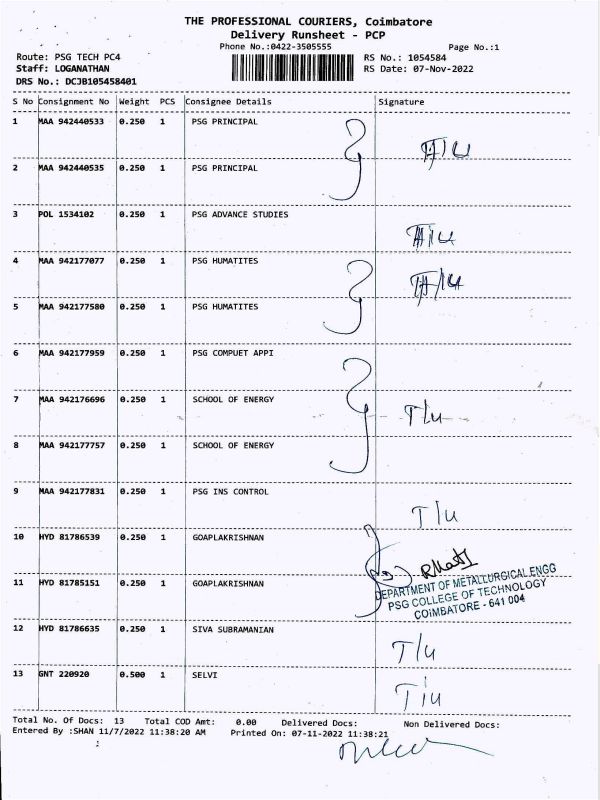 THE PROFESSIONAL COURIERS, Coimbatore
Delivery Runsheet - PCP
Phone No.:0422-3505555 Page No.:1
Route: PSG TECH PC4 RS No.: 1054584
Staff: LOGANATHAN RS Date: 07-Nov-2022
DRS No.: DCJB105458401
S No Consignment No Weight PCS Consignee Details Signature
1 MAA 942440533 0.250 1 PSG PRINCIPAL
2 MAA 942440535 0.250 1 PSG PRINCIPAL
3 POL 1534102 0.250 1 PSG ADVANCE STUDIES
4 MAA 942177077 0.250 1 PSG HUMATITES
5 MAA 942177580 0.250 1 PSG HUMATITES
6 MAA 942177959 0.250 1 PSG COMPUET APPI
7 MAA 942176696 0.250 1 SCHOOL OF ENERGY
8 MAA 942177757 0.250 1 SCHOOL OF ENERGY
9 MAA 942177831 0.250 1 PSG INS CONTROL
10 HYD 81786539 0.250 1 GOAPLAKRISHNAN
11 HYD 81785151 0.250 1 GOAPLAKRISHNAN
DEPARTMENT OF METALLURGICAL ENGG
PSG COLLEGE OF TECHNOLOGY
COIMBATORE - 641 004
12 HYD 81786635 0.250 1 SIVA SUBRAMANIAN
13 GNT 220920 0.500 1 SELVI
Total No. Of Docs: 13 Total COD Amt: 0.00 Delivered Docs: Non Delivered Docs:
Entered By :SHAN 11/7/2022 11:38:20 AM Printed On: 07-11-2022 11:38:21